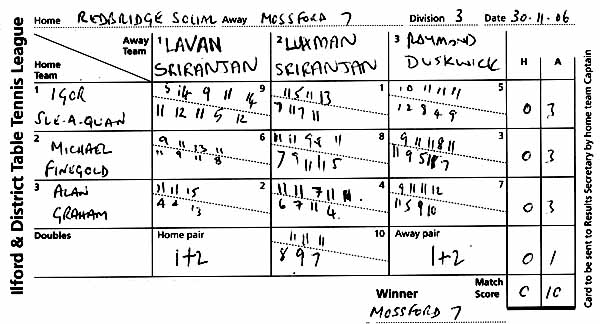 Ilford & District Table Tennis League
Home REDBRIDGE SOCIAL Away MOSSFORD 7 Division 3 Date 30-11-06
Away Team
Home Team
1 LAVAN SRIRANJAN
2 LUXMAN SRIRANJAN
3 RAYMOND DUSKWICK
H A
1 IGOR SLE-A-QUAN
9
5 14 9 11 14
11 12 11 5 12
1
11 5 11 13
7 11 7 11
5
10 11 11 11
12 8 4 9
0 3
2 MICHAEL FINEGOLD
6
9 11 13 11
11 9 11 8
8
11 11 9 8 11
7 9 11 11 5
3
9 11 11 8 11
11 9 5 11 7
0 3
3 ALAN GRAHAM
2
11 11 15
4 2 13
4
11 11 7 11
6 7 11 4
7
9 11 11 12
11 5 9 10
0 3
Doubles
Home pair
1+2
10
11 11 11
8 9 7
Away pair
1+2
0 1
Winner
MOSSFORD 7
Match Score
0 10
Card to be sent to Results Secretary by home team Captain